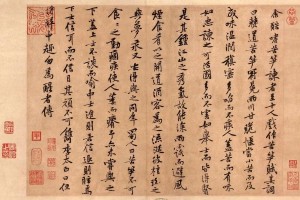 余酷嗜苦笋諫者至十人戲作苦笋賦其詞
曰僰道苦笋冠冕兩川甘脆愜當小苦而反
成味溫潤縝密多啗而不疾人蓋苦而有味
如忠諫之可活國多而不害如舉士而皆得賢
是其鍾江山之秀氣故能深雨露而避風
煙食肴以之開道酒客為之流涎彼桂斑之
與夢永又安得與之同年蜀人曰苦笋不可
食食之動痼疾使人萎而瘠予亦未嘗與之
下蓋上士不談而喻中士進則若信退則眩焉
下士信耳而不信目其頑不可鐫李太白曰但
得醉中趣勿為醒者傳